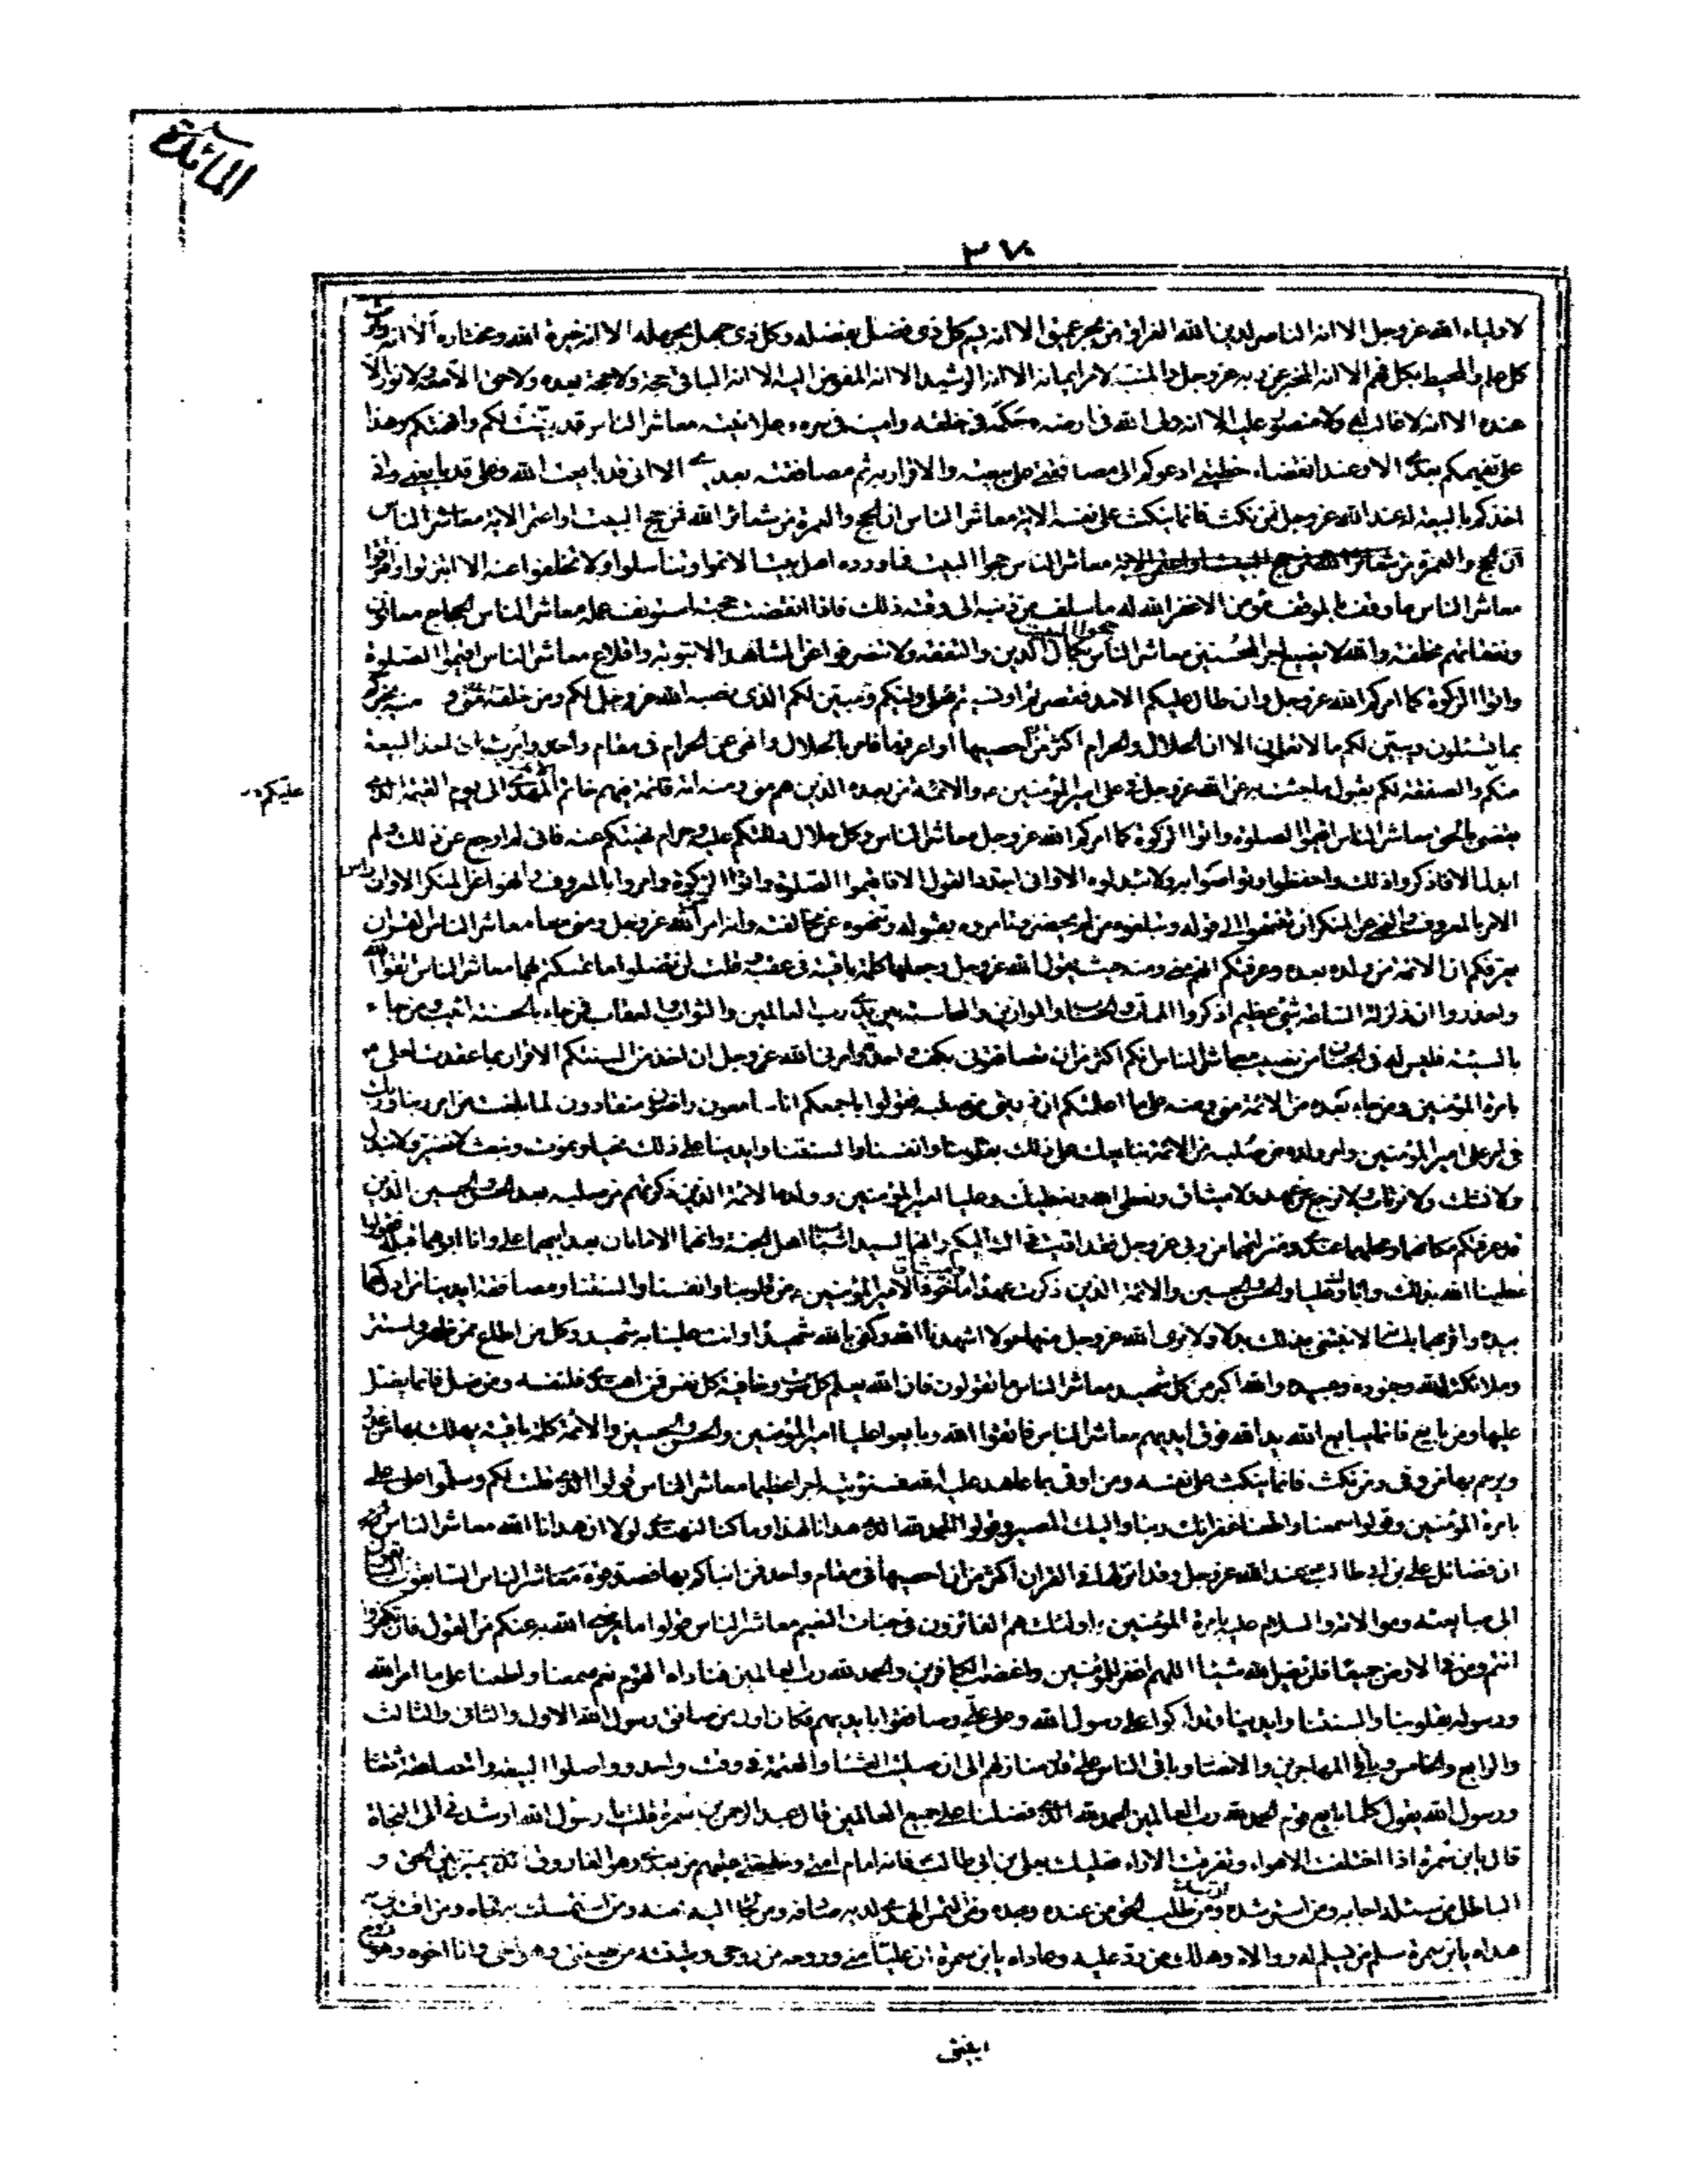 المائدة
٣٧٠
لاولياء الله عز وجل الا انه الناصر لدين الله الغراف من بحر عميق الا انه يسم كل ذى فضل بفضله وكل ذى جهل بجهله الا انه خيرة الله ومختاره الا انه وارث
كل علم والمحيط بكل فهم الا انه المخبر عن ربه عز وجل والمنبه لامر ايمانه الا انه الرشيد الا انه المفوض اليه الا انه الباقى حجة ولا حجة بعده ولا حق الا معه ولا نور الا
عنده الا انه لا غالب له ولا منصور عليه الا انه ولى الله فى ارضه وحكمه فى خلقه وامينه فى سره وعلانيته معاشر الناس قد بينت لكم وافهمتكم وهذا
على يفهمكم بعدى الا وعند انقضاء خطبتى ادعوكم الى مصافقتى على بيعته والاقرار به ثم مصافقته بعدى الا انى قد بايعت الله وعلى قد بايعنى وانى
اخذكم بالبيعة له عند الله عز وجل فمن نكث فانما ينكث على نفسه الاية معاشر الناس ان الحج والعمرة من شعائر الله فمن حج البيت او اعتمر الاية معاشر الناس
ان الحج والعمرة من شعائر الله فمن حج البيت او اعتمر الاية معاشر الناس حجوا البيت فما ورده اهل بيت الا نموا وتناسلوا ولا تخلفوا عنه الا انبتروا وافترقوا
معاشر الناس ما وقف بالموقف مؤمن الا غفر الله له ما سلف من ذنبه الى وقته ذلك فاذا انقضت حجته استؤنف عمله معاشر الناس الحجاج معانون
ونفقاتهم مخلفة والله لا يضيع اجر المحسنين معاشر الناس حجوا البيت بكمال الدين والتفقه ولا تنصرفوا عن المشاهد الا بتوبة واقلاع معاشر الناس اقيموا الصلوة
واتوا الزكوة كما امركم الله عز وجل وان طال عليكم الامد فقصرتم او نسيتم فعلى وليكم ومبين لكم الذى نصبه الله عز وجل لكم ومن خلقه منى و منه يخبركم
بما تسئلون ويبين لكم ما لا تعلمون الا ان الحلال والحرام اكثر من ان احصيهما او اعرفهما فامر بالحلال وانهى عن الحرام فى مقام واحد وامرت ان اخذ البيعة
عليكم
منكم والصفقة لكم بقبول ما جئت به عن الله عز وجل فى على امير المؤمنين ع والائمة من بعده الذين هم منى ومنه ائمة قائمة فيهم خاتم المهدى الى يوم القيمة الذى
يقضى بالحق معاشر الناس اقيموا الصلوة واتوا الزكوة كما امركم الله عز وجل معاشر الناس وكل حلال دللتكم عليه وحرام نهيتكم عنه فانى لم ارجع عن ذلك ولم
ابدل الا فاذكروا ذلك واحفظوه وتواصوا به ولا تبدلوه الا وانى اجدد القول الا فاقيموا الصلوة واتوا الزكوة وامروا بالمعروف وانهوا عن المنكر الا وان راس
الامر بالمعروف والنهى عن المنكر ان تنتهوا الى قولى وتبلغوه من لم يحضر وتامروه بقبوله وتنهوه عن مخالفته فانه امر الله عز وجل ومنى معاشر الناس القران
يعرفكم ان الائمة من ولده بعده وعرفتكم انهم منى ومنه حيث يقول الله عز وجل وجعلها كلمة باقية فى عقبه وقلت لن تضلوا ما تمسكتم بهما معاشر الناس اتقوا الله
واحذروا ان زلزلة الساعة شئ عظيم اذكروا الممات والحساب والموازين والمحاسبة بين يدى رب العالمين والثواب والعقاب فمن جاء بالحسنة اثيب ومن جاء
بالسيئة فليس له فى الجنان من نصيب معاشر الناس انكم اكثر من ان تصافقونى بكف واحدة وامرنى الله عز وجل ان اخذ من السنتكم الاقرار بما عقدت لعلى
بامرة المؤمنين ومن جاء بعده من الائمة منى ومنه على ما اعلمتكم ان ذريتى من صلبه فقولوا باجمعكم انا سامعون راضون منقادون لما بلغت من امر ربنا وربك
فى امر على امير المؤمنين وامر ولده من صلبه من الائمة نبايعك على ذلك بقلوبنا وانفسنا والسنتنا وايدينا على ذلك نحيى ونموت ونبعث لا نغير ولا نبدل
ولا نشك ولا نرتاب ولا نرجع عن عهد ولا ميثاق ونعطى الله ونعطيك وعليا امير المؤمنين وولده الائمة الذين ذكرتهم من صلبه بعد الحسن والحسين الذين
قد عرفتكم مكانهما ومحلهما عندى ومنزلتهما من ربى عز وجل فقد اديت ذلك اليكم وانهما سيدا شباب اهل الجنة وانهما الامامان بعد ابيهما على وانا ابوهما قبله فقولوا
اعطينا الله بذلك واياك وعليا والحسن والحسين والائمة الذين ذكرت عهدا وميثاقا ماخوذا لامير المؤمنين من قلوبنا وانفسنا والسنتنا ومصافقة ايدينا من ادركهما
بيده واقر بهما بلسانه لا نبتغى بذلك بدلا ولا نرى الله عز وجل منها حولا اشهدنا الله وكفى بالله شهيدا وانت علينا به شهيد وكل من اطاع ممن ظهر واستتر
وملائكة الله وجنوده وعبيده والله اكبر من كل شهيد معاشر الناس ما تقولون فان الله يعلم كل صوت وخافية كل نفس فمن اهتدى فلنفسه ومن ضل فانما يضل
عليها ومن بايع فانما يبايع الله يد الله فوق ايديهم معاشر الناس فاتقوا الله وبايعوا عليا امير المؤمنين والحسن والحسين والائمة كلمة باقية يهلك بها من غدر
ويرحم بها من وفى ومن نكث فانما ينكث على نفسه ومن اوفى بما عاهد عليه الله فسنؤتيه اجرا عظيما معاشر الناس قولوا الذى قلت لكم وسلموا على على
بامرة المؤمنين وقولوا سمعنا واطعنا غفرانك ربنا واليك المصير وقولوا الحمد لله الذى هدانا لهذا وما كنا لنهتدى لولا ان هدانا الله معاشر الناس
ان فضائل على بن ابى طالب عند الله عز وجل وقد انزلها فى القران اكثر من ان احصيها فى مقام واحد فمن انباكم بها فصدقوه معاشر الناس السابقون السابقون
الى مبايعته وموالاته والسلام عليه بامرة المؤمنين اولئك هم الفائزون فى جنات النعيم معاشر الناس قولوا ما يرضى الله به عنكم من القول فان تكفروا
انتم ومن فى الارض جميعا فلن يضر الله شيئا اللهم اغفر للمؤمنين واغضب على الكافرين والحمد لله رب العالمين فناداه القوم نعم سمعنا واطعنا على ما امر الله
ورسوله بقلوبنا والسنتنا وايدينا وتداكوا على رسول الله وعلى على وصافقوا بايديهم فكان اول من صافق رسول الله الاول والثانى والثالث
والرابع والخامس وباقى المهاجرين والانصار وباقى الناس على قدر منازلهم الى ان صليت العشاء والعتمة فى وقت واحد وواصلوا البيعة والمصافقة ثلثا
ورسول الله يقول كلما بايع قوم الحمد لله رب العالمين الحمد لله الذى فضلنا على جميع العالمين قال عبد الرحمن بن سمرة قلت يا رسول الله ارشدنى الى النجاة
قال يا بن سمرة اذا اختلفت الاهواء وتفرقت الاراء فعليك بعلى بن ابى طالب فانه امام امتى وخليفتى عليهم من بعدى وهو الفاروق الذى يميز بين الحق و
الباطل من سئله اجابه ومن استرشده ارشده ومن طلب الحق من عنده وجده ومن التمس الهدى لديه صادفه ومن لجا اليه امنه ومن استمسك به نجاه ومن اقتدى به
هداه يا بن سمرة سلم من سلم له ووالاه وهلك من رد عليه وعاداه يا بن سمرة ان عليا منى وروحه من روحى وطينته من طينتى وهو اخى وانا اخوه وهو زوج
ابنتى